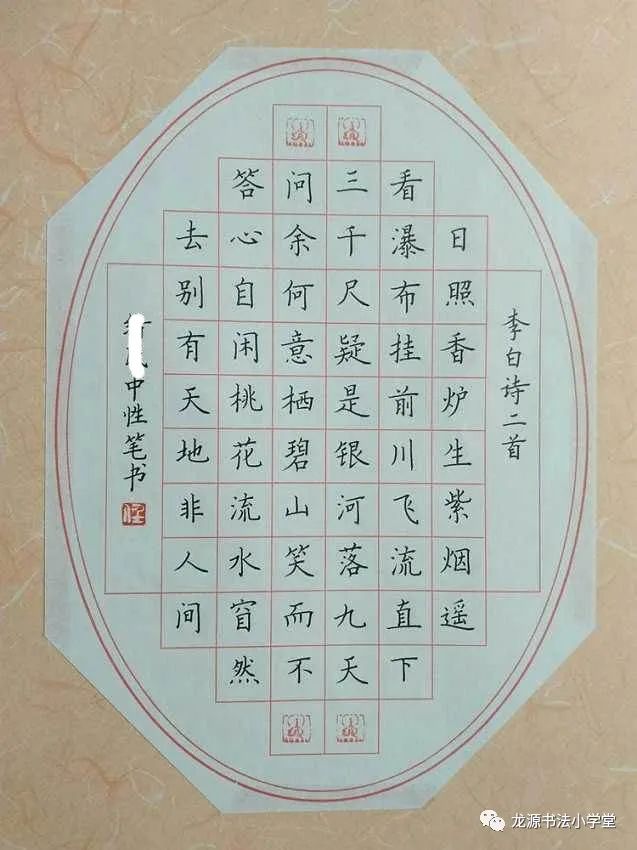 李白诗二首
日照香炉生紫烟遥
看瀑布挂前川飞流直下
三千尺疑是银河落九天
问余何意栖碧山笑而不
答心自闲桃花流水窅然
去别有天地非人间
中性笔书
龙源书法小学堂